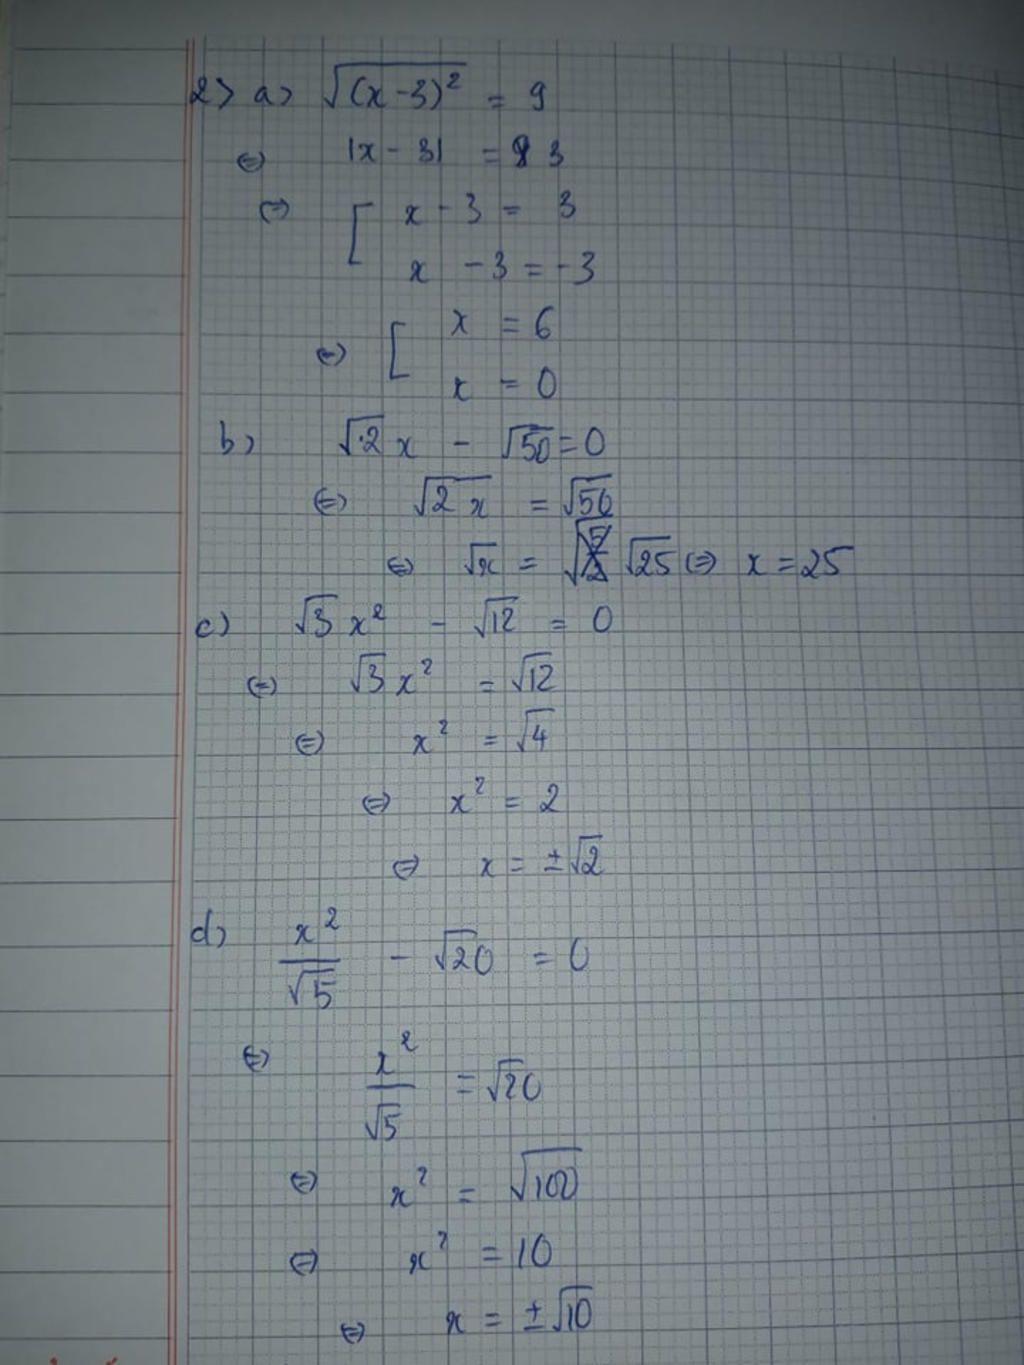 2> a> √(x-3)² = 9
⇔ |x-3| = 3
⇔ [ x-3 = 3
x -3 = -3
⇔ [ x = 6
x = 0
b) √2 x - √50 = 0
⇔ √2x = √50
⇔ √x = √25 ⇔ x = 25
c) √3 x² - √12 = 0
⇔ √3 x² = √12
⇔ x² = √4
⇔ x² = 2
⇔ x = ±√2
d) x²/√5 - √20 = 0
⇔ x²/√5 = √20
⇔ x² = √100
⇔ x² = 10
⇔ x = ±√10